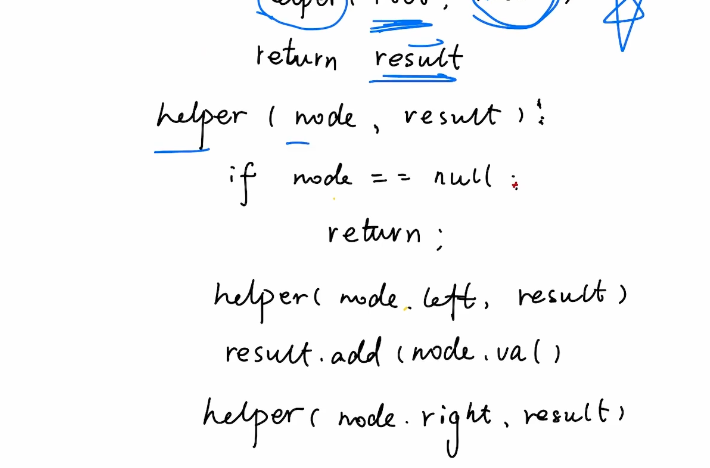 helper(
return result
helper ( node , result ) :
if node == null :
return ;
helper( node.left, result )
result.add (node.val)
helper( node.right, result )